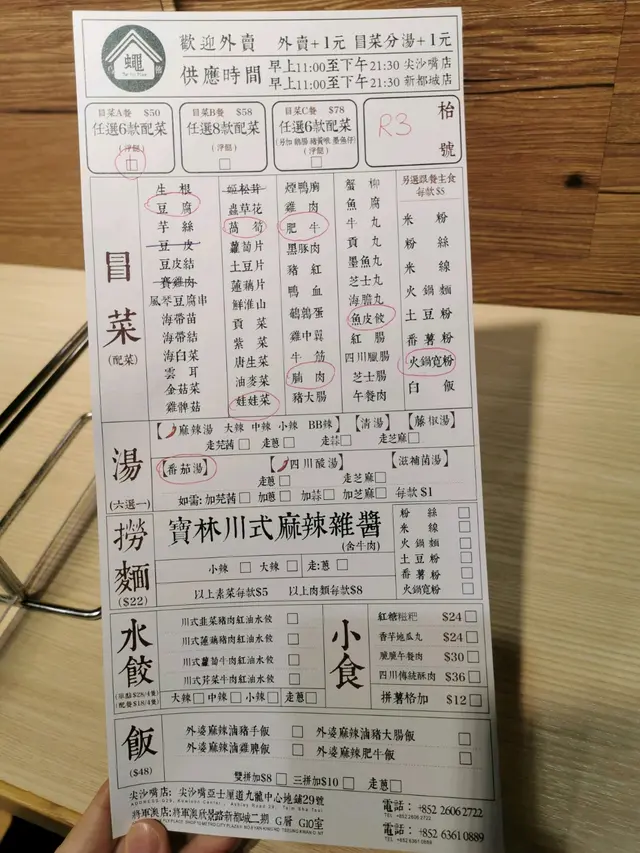 蠅
歡迎外賣 外賣+1元 冒菜分湯+1元
供應時間 早上11:00至下午21:30 尖沙嘴店
早上11:00至下午21:30 新都城店
冒菜A餐 $50
任選6款配菜
(淨餸)
冒菜B餐 $58
任選8款配菜
(淨餸)
冒菜C餐 $78
任選6款配菜
(淨餸)
R3
枱號
冒菜
(配菜)
生根
豆腐
芋絲
豆皮
豆皮結
齋雞肉
風琴豆腐串
海帶苗
海帶結
海白菜
雲耳
金菇菜
雞髀菇
姬松茸
蟲草花
萵筍
蘿蔔片
土豆片
蓮藕片
鮮淮山
貢菜
紫菜
唐生菜
油麥菜
娃娃菜
煙鴨胸
雞肉
肥牛
黑豚肉
豬紅
鴨血
鵪鶉蛋
雞中翼
牛筋
腩肉
豬大腸
蟹柳
魚腐
牛丸
貢丸
墨魚丸
芝士丸
海膽丸
魚皮餃
紅腸
四川臘腸
芝士腸
午餐肉
另選跟餐主食
每款$8
米粉
粉絲
米線
火鍋麵
土豆粉
番薯粉
火鍋寬粉
白飯
湯
(六選一)
【麻辣湯 大辣 中辣 小辣 BB辣】【清湯】【藤椒湯】
走芫茜 走蔥 走蒜 走芝麻
【番茄湯】【四川酸湯】【滋補菌湯】
走蔥 走芝麻
如需: 加芫茜 加蔥 加蒜 加芝麻 每款$1
撈麵
($22)
寶林川式麻辣雜醬
(含牛肉)
小辣 大辣 走:蔥
以上素菜每款$5 以上肉類每款$8
粉絲
米線
火鍋麵
土豆粉
番薯粉
火鍋寬粉
水餃
(單點$28/4隻)
(配餐$18/4隻)
川式韭菜豬肉紅油水餃
川式蓮藕豬肉紅油水餃
川式蘿蔔牛肉紅油水餃
川式芹菜牛肉紅油水餃
大辣 中辣 小辣 走蔥
小食
紅糖糍粑 $24
香芋地瓜丸 $24
脆脆午餐肉 $30
四川傳統酥肉 $36
拼薯格加 $12
飯
($48)
外婆麻辣滷豬手飯
外婆麻辣滷豬大腸飯
外婆麻辣滷雞脾飯
外婆麻辣肥牛飯
雙拼加$8 三拼加$10 走蔥
尖沙嘴店: 尖沙嘴亞士厘道九龍中心地鋪29號
將軍澳店: 將軍澳欣景路新都城二期 G層 G10室
電話: +852 2606 2722
TEL +852 2606 2722
電話: +852 6361 0889
TEL +852 6361 0889